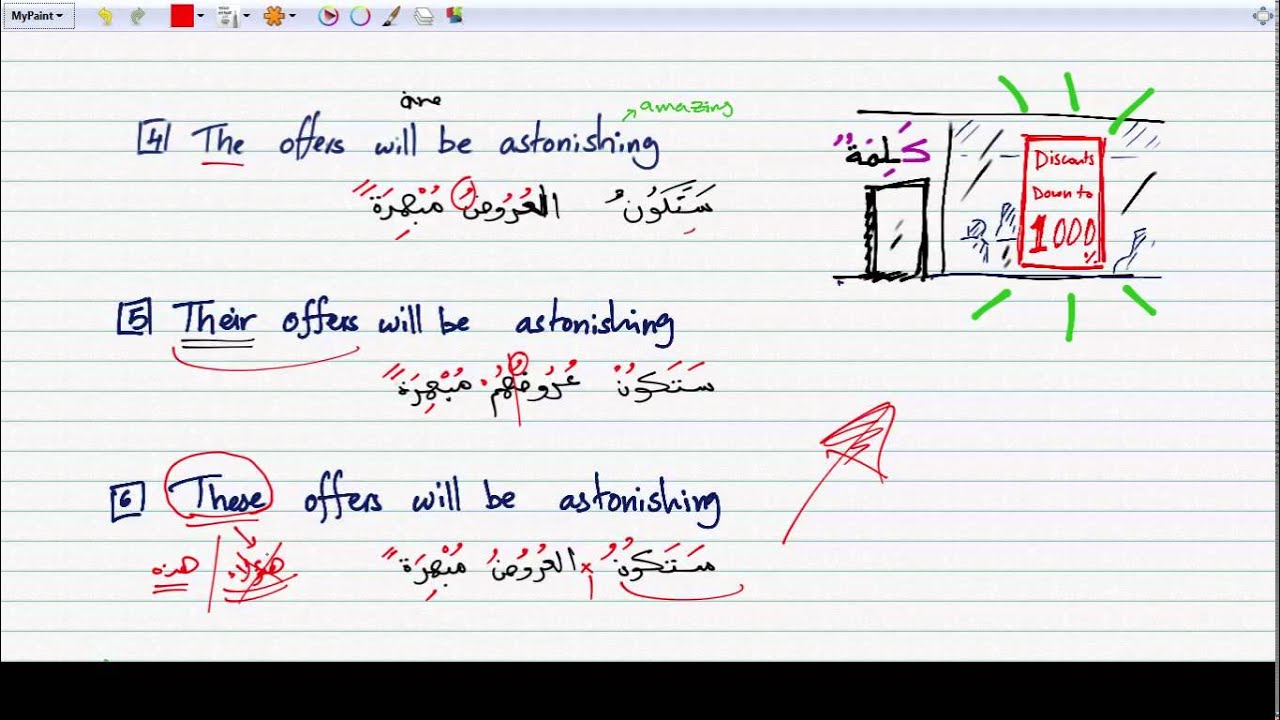 MyPaint
are
amazing
[4] The offers will be astonishing
سَتَكُونُ العُرُوضُ مُبْهِرَةً
كَلِمَة
Discounts
Down to
1000
%
[5] Their offers will be astonishing
سَتَكُونُ عُرُوضُهُمْ مُبْهِرَةً
[6] These offers will be astonishing
سَتَكُونُ العُرُوضُ مُبْهِرَةً
هؤلاء / هذه